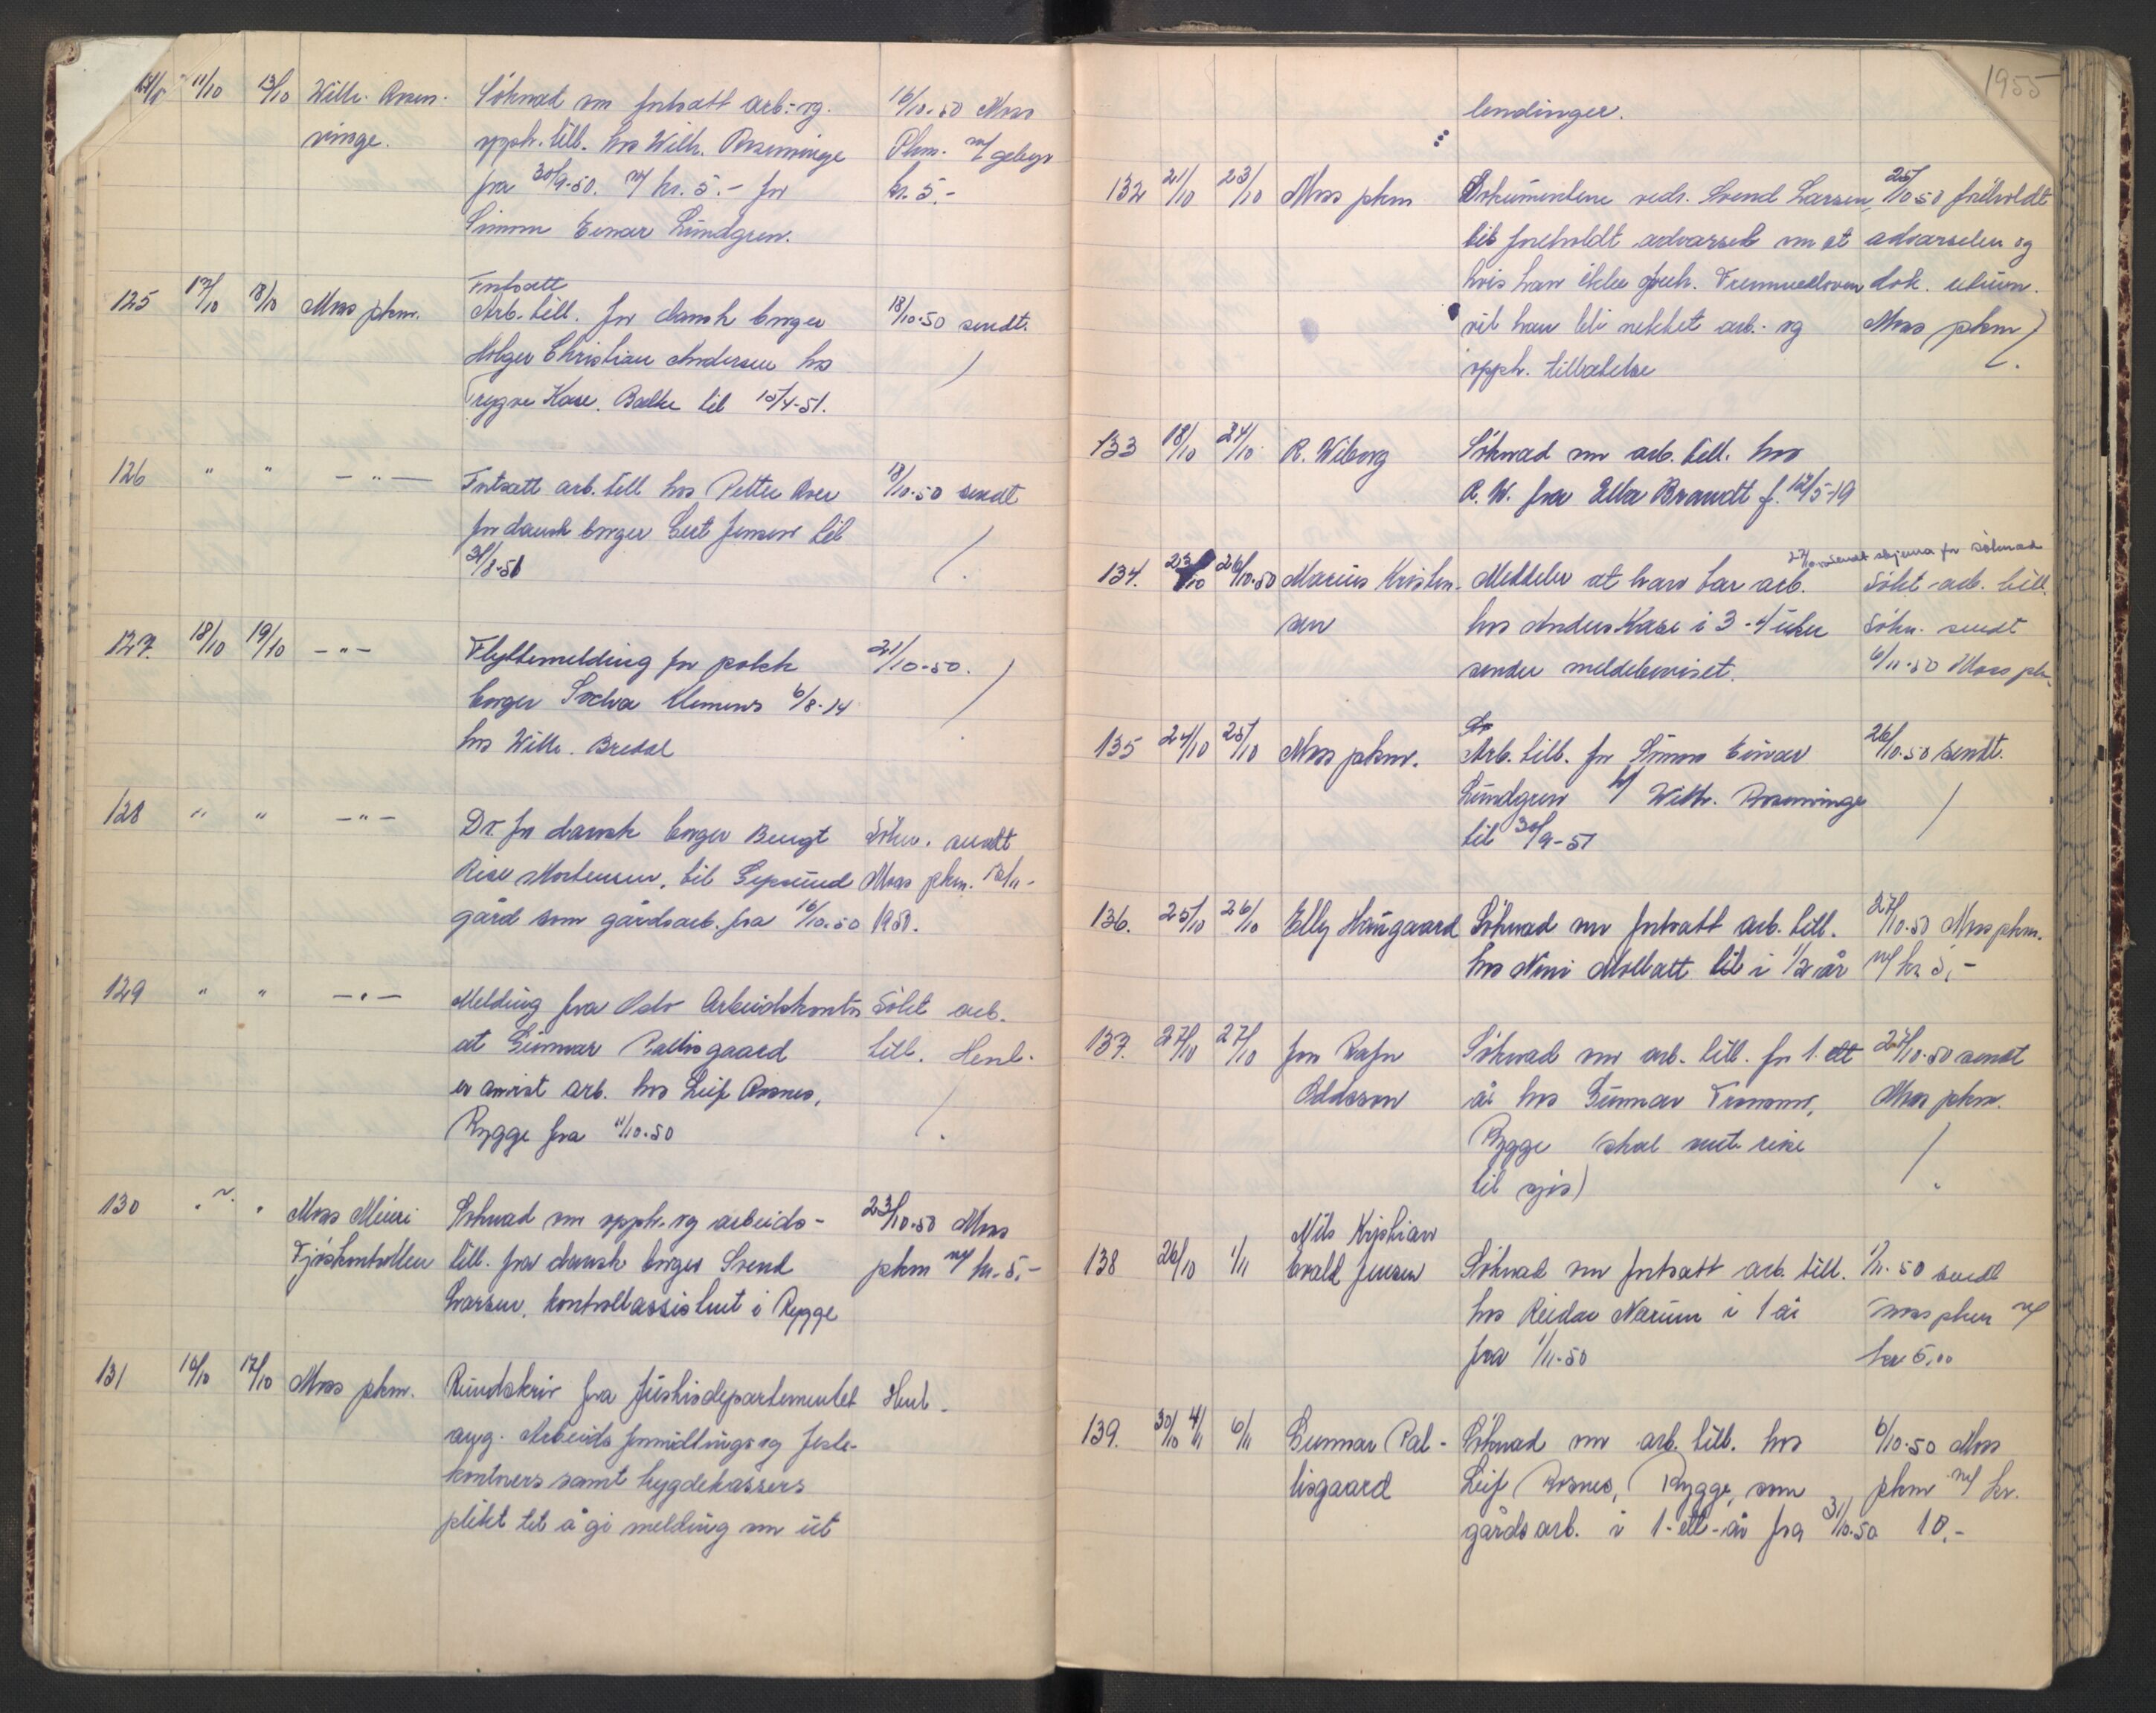 11/10 13/10 Wilh. Rosen- Söknad om fortsatt arb.- og 16/10-50 Moss
vinge. opph. till. hos Wilh. Rosenvinge Pkm. m/ gebyr
fra 30/9-50. m/ kr. 5.- for kr. 5.-
Simon Einar Lundgren.
Fortsatt
125 17/10 18/10 Moss pkm. Arb. till. for dansk borger 18/10-50 sendt.
Holger Christian Andersen hos
Trygve Kase. Bælte til 15/4-51.
126 " " — " — Fortsatt arb. till hos Petter 18/10-50 sendt
for dansk borger Gert Jensen til
31/8-51
127. 18/10 19/10 — " — Flyttemelding for polsk 21/10-50.
borger Klemens 6/8-14
hos Wilh. Bredal
128 " " — " — Do. for dansk borger Bengt Søkn. sendt
Mortensen, til Gipsund Moss pkm.
gård som gårdsarb. fra 16/10-50 1950.
129 " " — " — Melding fra Oslo Arbeidskontor Søkt arb.
at Gunnar Pallisgaard till. Henl.
er anvist arb. hos Leif Rosnes,
Rygge fra 11/10-50
130 " " Moss Meieri Søknad om opph. og arbeids- 23/10-50 Moss
Fjøskontrollen till. fra dansk borger Svend pkm m/ kr. 5.-
Larsen, kontrollassistent i Rygge
131 16/10 17/10 Moss pkm. Rundskriv fra Justisdepartementet Henl.
ang. Arbeidsformidlings og feste-
kontorers samt trygdekassers
plikt tel å gi melding om ut
1955
lendinger.
132 21/10 23/10 Moss pkm Dokumentene vedr. Svend Larsen, 25/10-50 forholdt
bli foreholdt advarsel om at advarselen og
hvis han ikke Fremmedloven dok. return.
vil han bli nektet arb.- og Moss pkm
opph. tillatelse
133 18/10 24/10 R. Wiborg Söknad om arb. till. hos
R. W. fra Ella Brandt f. 12/5-19
27/10 sendt skjema for søknad
134. 23/10 26/10-50 Marius Kristen- Meddeler at han har arb. Søkt arb. till.
sen hos Anders Kase i 3-4 uker Søkn. sendt
sender meldebeviset. 6/11-50 Moss pk.
135 24/10 25/10 Moss pkm. Arb. till. for Simon Einar 26/10-50 sendt.
Lundgren h/ Wilh. Rosenvinge
til 30/9-51
136. 25/10 26/10 Elly Haugaard Söknad om fortsatt arb. till. 27/10-50 Moss pkm.
hos Nini Mollatt til i 1/2 år m/ kr 5.-
137. 27/10 27/10 Jon Rafn Söknad om arb. till. for 1 ett 28/10-50 sendt
Oddsson år hos Gunnar Tronsmo, Moss pkm.
Rygge (skal reise
til sjøs)
Nils Kristian
138 26/10 1/11 Evald Jensen Söknad om fortsatt arb. till. 1/11-50 sendt
hos Reidar Narum i 1 år Moss pkm m/
fra 1/11-50 kr 5,00
139. 30/10 4/11 6/11 Gunnar Pal- Söknad om arb. till. hos 6/10-50 Moss
lisgaard Leif Rosnes, Rygge, som pkm m/ kr.
gårdsarb. i 1-ett-år fra 31/10-50 10.-